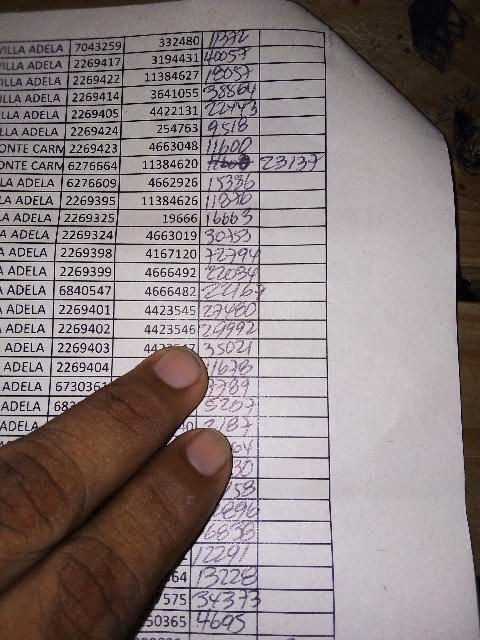 VILLA ADELA 7043259 332480 11372
VILLA ADELA 2269417 3194431 40057
VILLA ADELA 2269422 11384627 18057
VILLA ADELA 2269414 3641055 38864
VILLA ADELA 2269405 4422131 22443
ILLA ADELA 2269424 254763 9518
ONTE CARM 2269423 4663048 11600
ONTE CARM 6276664 11384620 23137
LA ADELA 6276609 4662926 15386
LA ADELA 2269395 11384626
LA ADELA 2269325 19666 16663
A ADELA 2269324 4663019 30753
A ADELA 2269398 4167120 72794
A ADELA 2269399 4666492 22034
A ADELA 6840547 4666482 22167
A ADELA 2269401 4423545 27480
A ADELA 2269402 4423546 29992
ADELA 2269403 35021
ADELA 2269404 11678
ADELA 6730361 789
ADELA 5207
ADELA 2187
64
30
58
896
6838
12291
364 13228
7575 34373
50365 4695